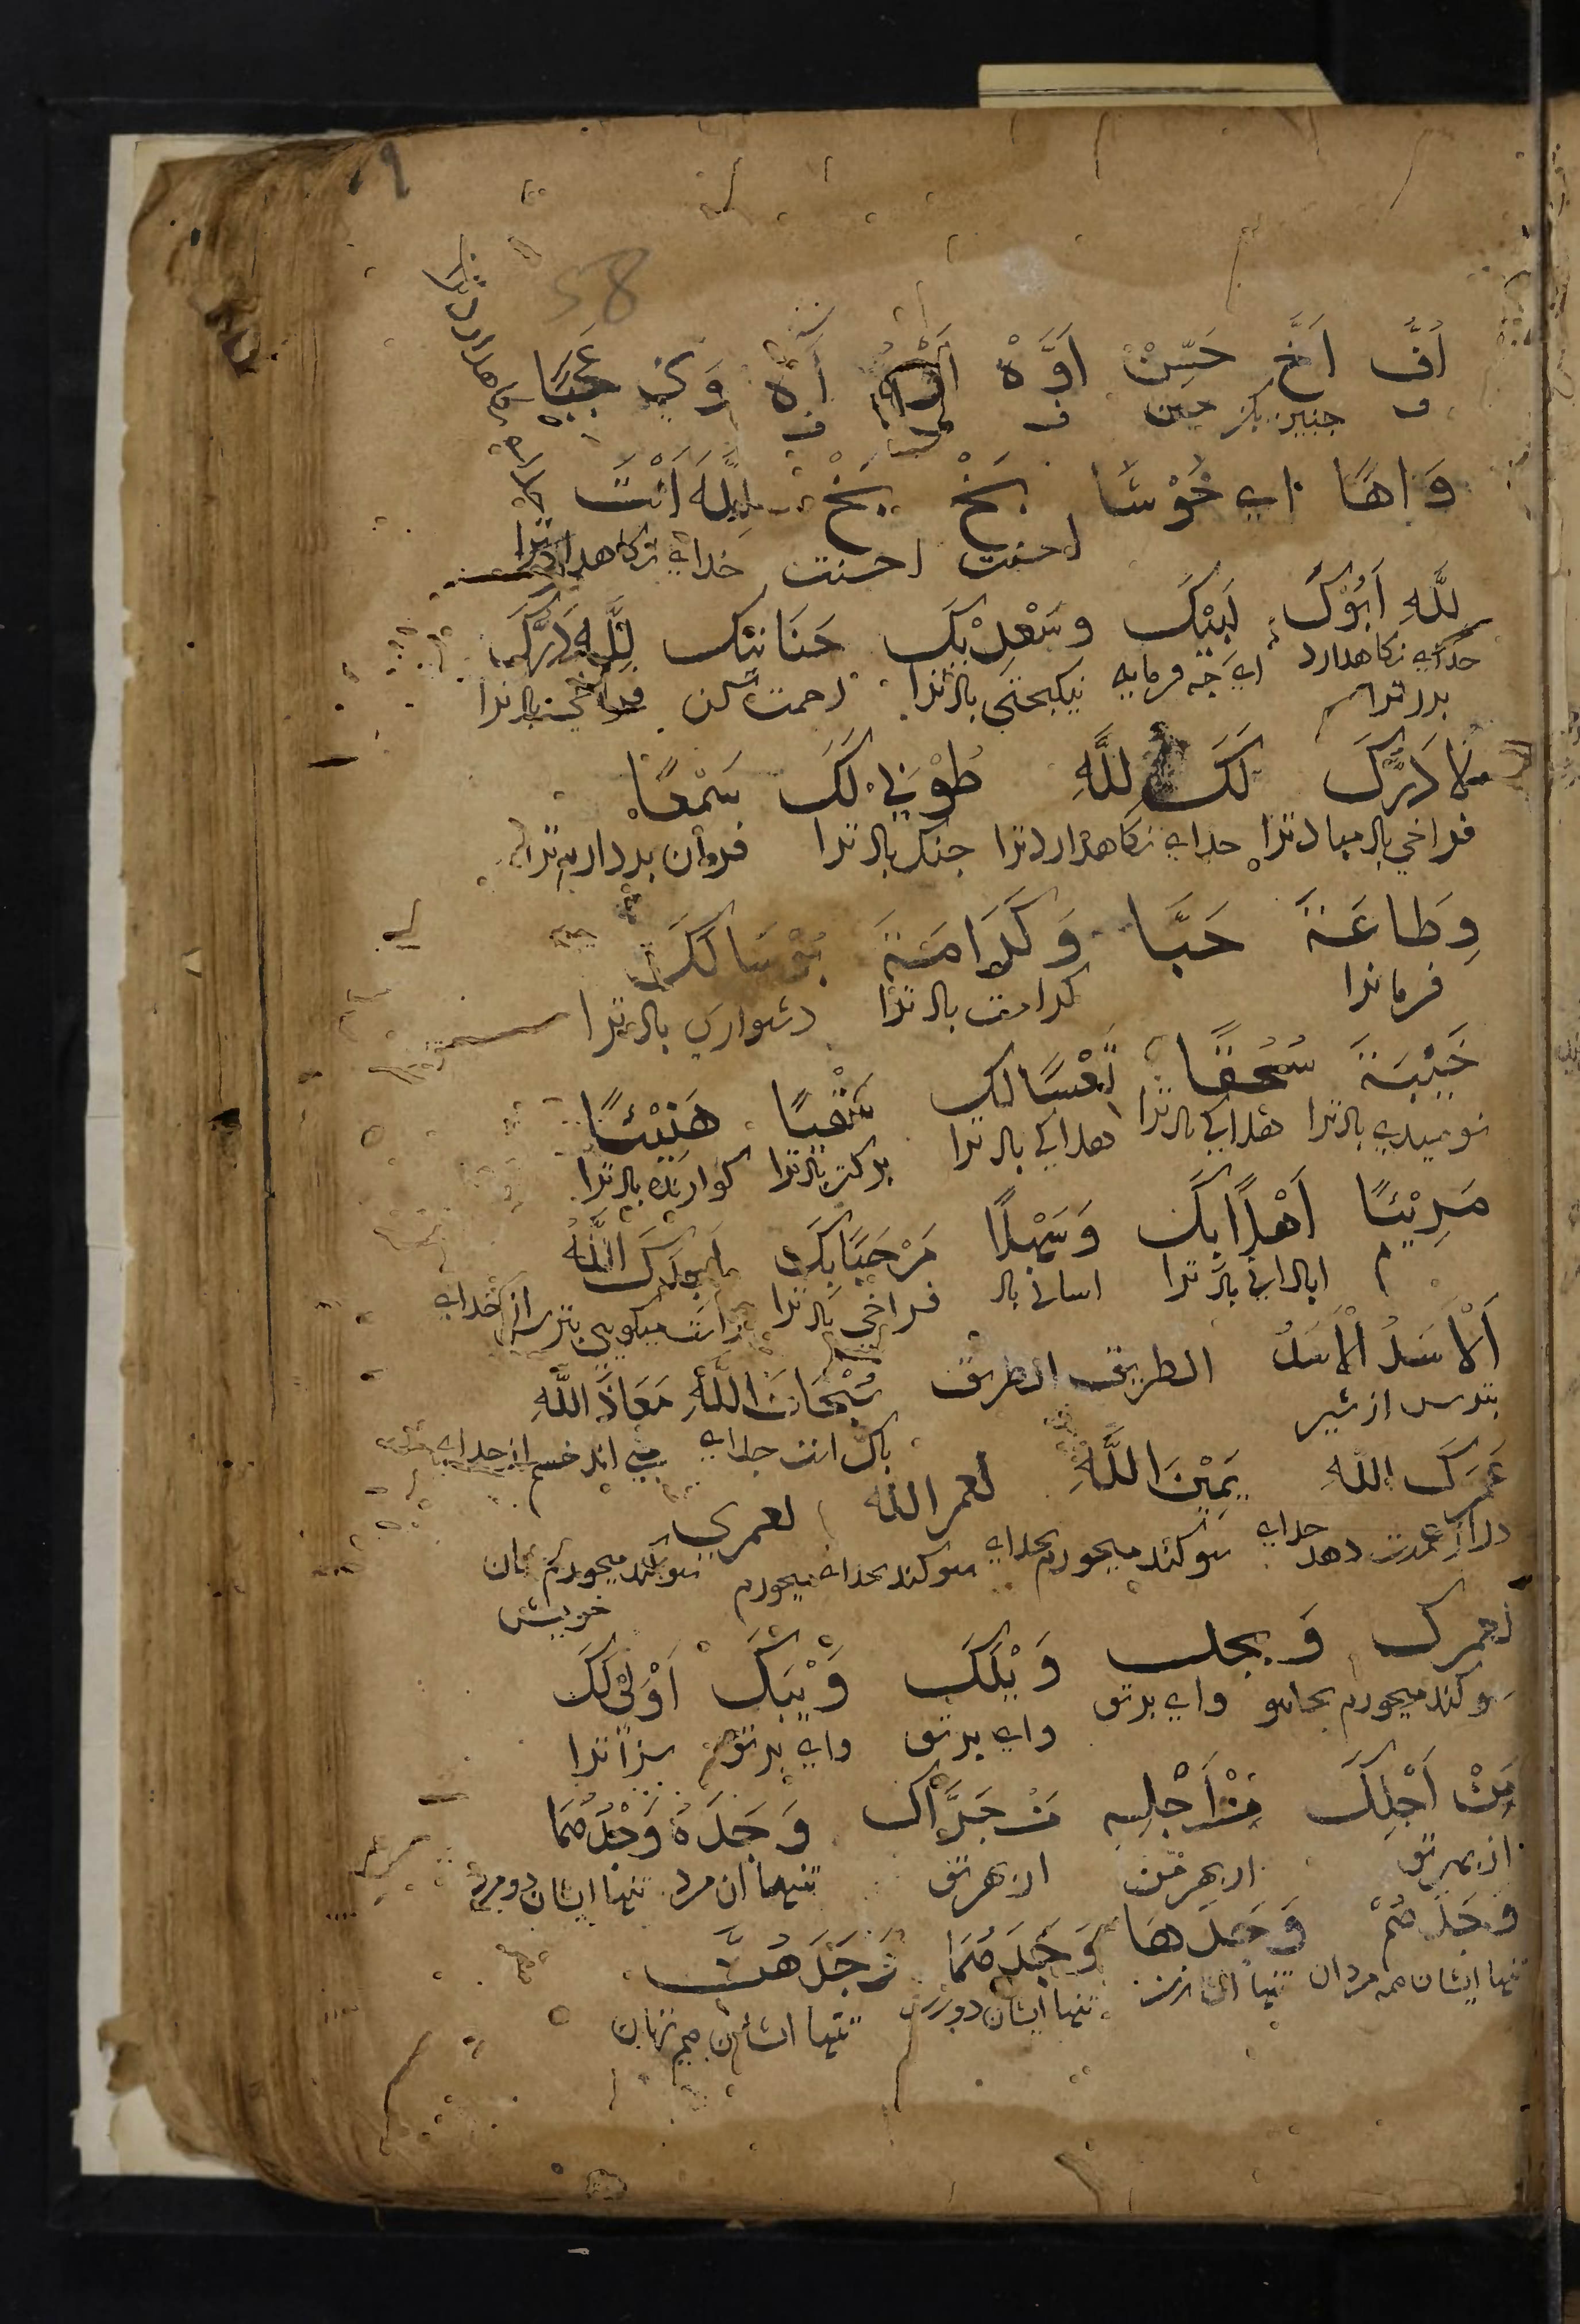 ٩
58
اُفَّ اَخَّ حَسِّنْ اَوَّهْ آهْ وَيْ عَجَبًا
ف چنین بکن چنین ف ف
وَاهًا اي خَوْشَا بَخْ بَخْ لِلَّهِ اَنْتَ
احسنت احسنت خداي نكاهدارد ترا
لِلَّهِ اَبُوْكَ لَبَّيْكَ وسَعْدَيْكَ حَنَانَيْكَ لِلَّهِ دَرُّكَ
خداي نكاهدارد اي چه فرمايي نيكبختى باد ترا رحمت كن
بدر ترا
لَا دَرَّكَ لَكَ لِلَّهِ طُوْبَى لَكَ سَمْعًا
فراخي باد مباد ترا خداي نكاهدارد ترا خنك باد ترا فرمان بردارم ترا
وِطَاعَةً حَبًّا وَكَرَامَةً بُوْسَا لَكَ
فرمانرا كرامت باد ترا دشواري باد ترا
خَيْبَةً سُحْقًا تَعْسًا لك سَقْيًا هَنِيْئًا
نوميدي باد ترا هلاكي باد ترا هلاكي باد ترا گوارنده باد ترا
مَرِيْئًا اَهْلًا بِكَ وَسَهْلًا مَرْحَبًا بِكَ اللَّهُ
م اباداني باد ترا اساني باد فراخي باد ترا راست ميكويي بترس از خداي
اَلْاَسَدُ اَلْاَسَدُ الطريق الطريق سُبْحَانَ اللَّهِ مَعَاذَ اللَّهِ
بترس از شير پاك است خداي
عَمْرَكَ اللَّهِ يَمِيْنَ اللَّهِ لعمر الله لعمري
دراز عمرت دهد خداي سوكند ميخورم بخداي سوكند بخداي ميخورم سوكند ميخورم بجان
خويش
لعمرك وَيحك وَيْلَكَ وَيْبَكَ اَوْلَى لَكَ
سوكند ميخورم بجان تو واي بر تو واي بر تو واي بر تو سزا ترا
مِنْ اَجْلِكَ مِنْ اَجْلِهِ مِنْ جَرَّاكَ وَحْدَهُ وَحْدَهُمَا
از بهر تو از بهر از بهر تو تنها ان مرد تنها ايشان دو مرد
وَحْدَهُمْ وَحْدَهَا وَحْدَهُمَا وَحْدَهُنَّ
تنها ايشان همه مردان تنها ان زن تنها ايشان دو زن تنها ايشان همه زنان